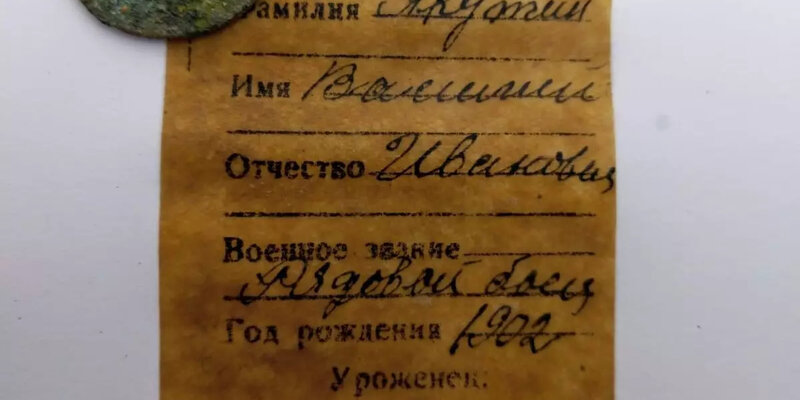 Фамилия Якутин
Имя Василий
Отчество Иванович
Военное звание
Рядовой боец
Год рождения 1902
Уроженец: